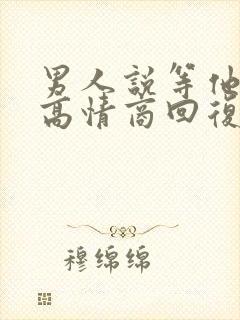 男人説等他
高情商回復
穆绵绵